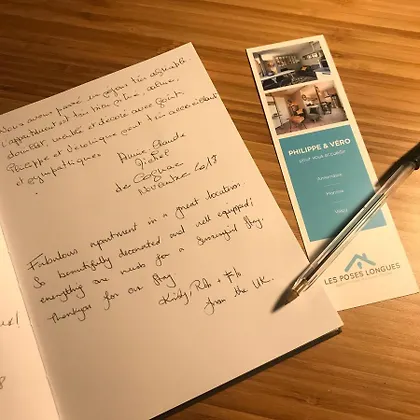 Nous avons passé un séjour très agréable.
L'appartement est très bien situé, calme,
meublé et décoré avec goût,
Philippe et Véronique sont très accueillants
et sympathiques.
Anne Claude
Michel
de Cognac
Novembre 2018
Fabulous apartment in a great location.
So beautifully decorated and well equipped;
everything one needs for a successful stay.
Thankyou for our stay
Kirsty, Rob + Flo
from the UK.
PHILIPPE & VÉRO
pour vous accueillir
LES POSES LONGUES